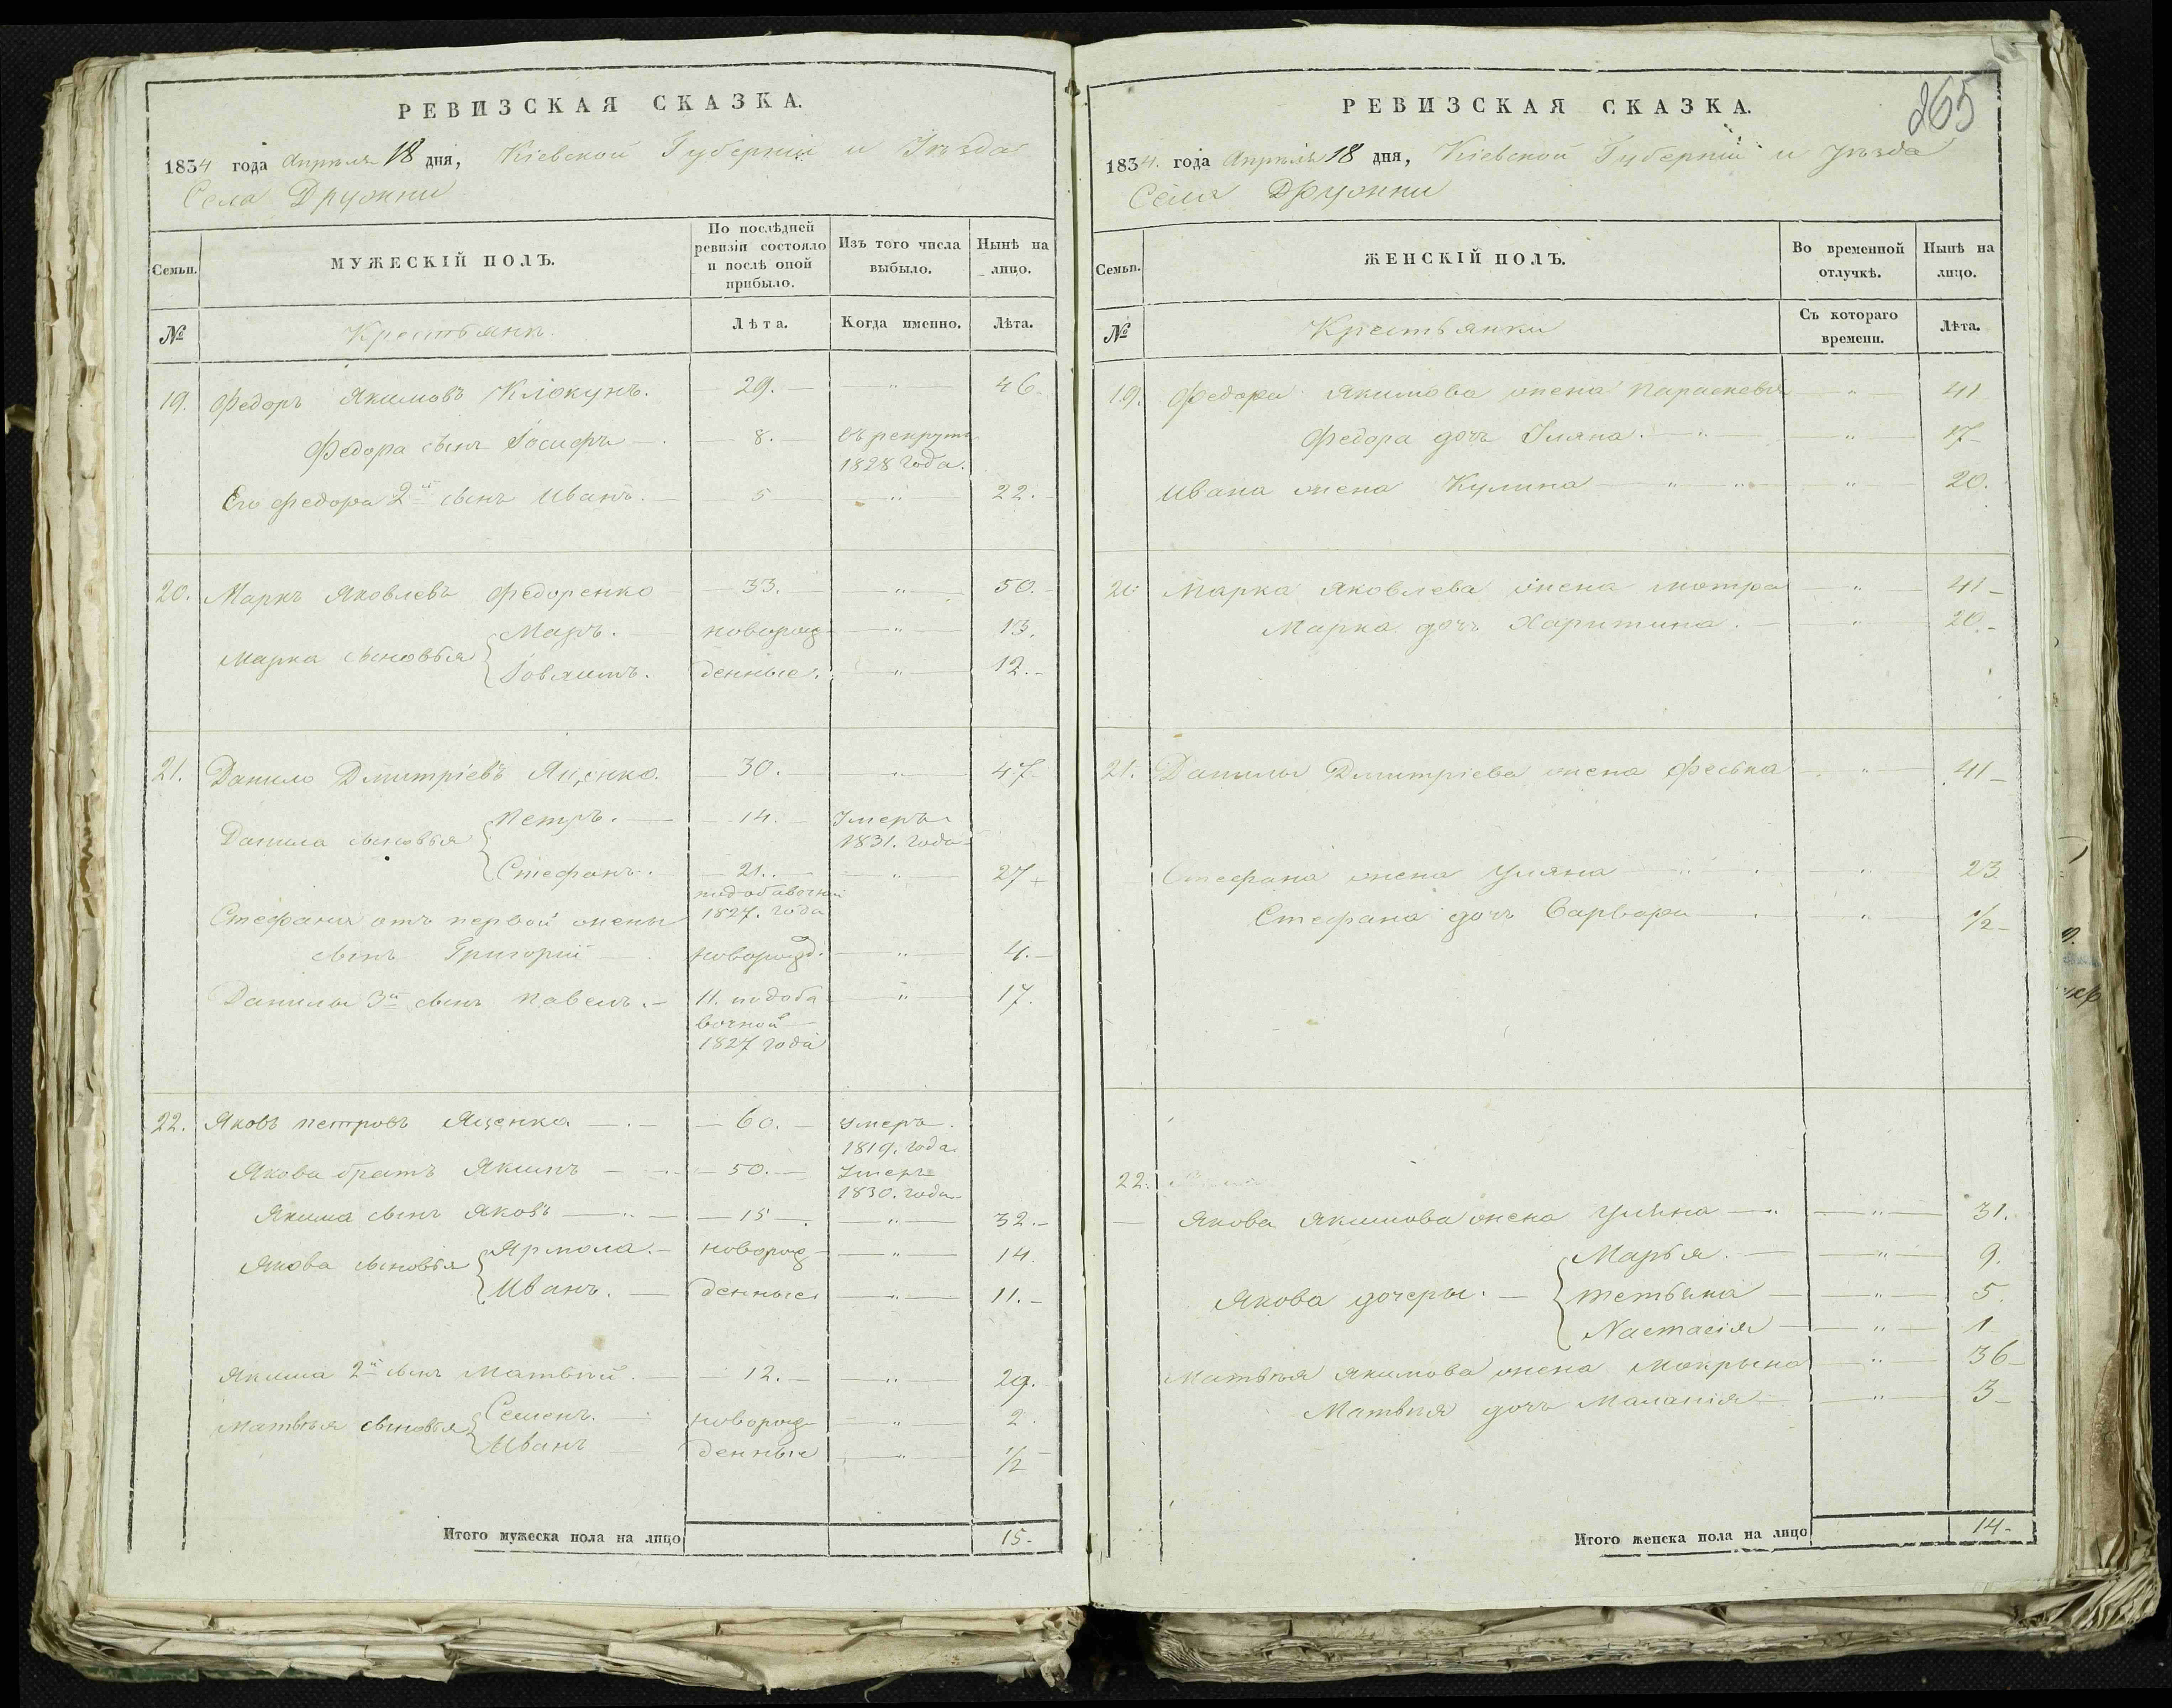 РЕВИЗСКАЯ СКАЗКА.
1834 года Апреля 18 дня, Кіевской Губерніи и Уѣзда
Села Дружни
Семьи. МУЖЕСКІЙ ПОЛЪ. По послѣдней ревизіи состояло и послѣ оной прибыло. Изъ того числа выбыло. Нынѣ на лицо.
№ Крестьянъ. Лѣта. Когда именно. Лѣта.
19. Федоръ Якимовъ Клокунъ. 29. " 46.
Федора сынъ Іосифъ 8. въ рекруты
1828 года.
Его Федора 2й сынъ Иванъ. 5 " 22.
20. Маркъ Яковлевъ Федоренко 33. " 50.
Марка сыновья новорож " 13.
денные. " 12.
21. Данило Дмитріевъ Яценко. 30. " 47
Данила сыновья Петръ. 14. Умеръ
1831. года
Стефанъ. 21. " 27
Стефана отъ первой жены 1827. года
сынъ Григорій новорожд. " 4.
Данилы 3й сынъ Павелъ. 11. по доба " 17.
вочной
1827 года
22. Яковъ Петровъ Яценко 60. Умеръ.
1819. года
Якова братъ Якимъ 50. Умеръ
1830. года
Якима сынъ Яковъ 15 " 32.
Якова сыновья Ярмола. новорож " 14.
Иванъ. денные " 11.
Якима 2й сынъ Матвѣй. 12. " 29.
Матвѣя сыновья Семенъ. новорож " 2.
Иванъ денные " 1/2
Итого мужеска пола на лицо 15.
265
РЕВИЗСКАЯ СКАЗКА.
1834. года Апреля 18 дня, Кіевской Губерніи и Уѣзда
Села Дружни
Семьи. ЖЕНСКІЙ ПОЛЪ. Во временной отлучкѣ. Нынѣ на лицо.
№ Крестьянки Съ котораго времени. Лѣта.
19. Федора Якимова жена Параскевья " 41
Федора дочь Уляна. " 17
Ивана жена Кулина " 20.
20. Марка Яковлева жена Мотра " 41
Марка дочь Харитина. " 20.
21. Данилы Дмитріева жена Феська " 41
Стефана жена Уляна " 23
Стефана дочь Варвара " 1/2
22.
Якова Якимова жена Уляна " 31.
Якова дочеры. Марья. " 9.
Тетьяна " 5.
Настасія " 1
Матвѣя Якимова жена Мокрына " 36
Матвѣя дочь Маланія " 3
Итого женска пола на лицо 14